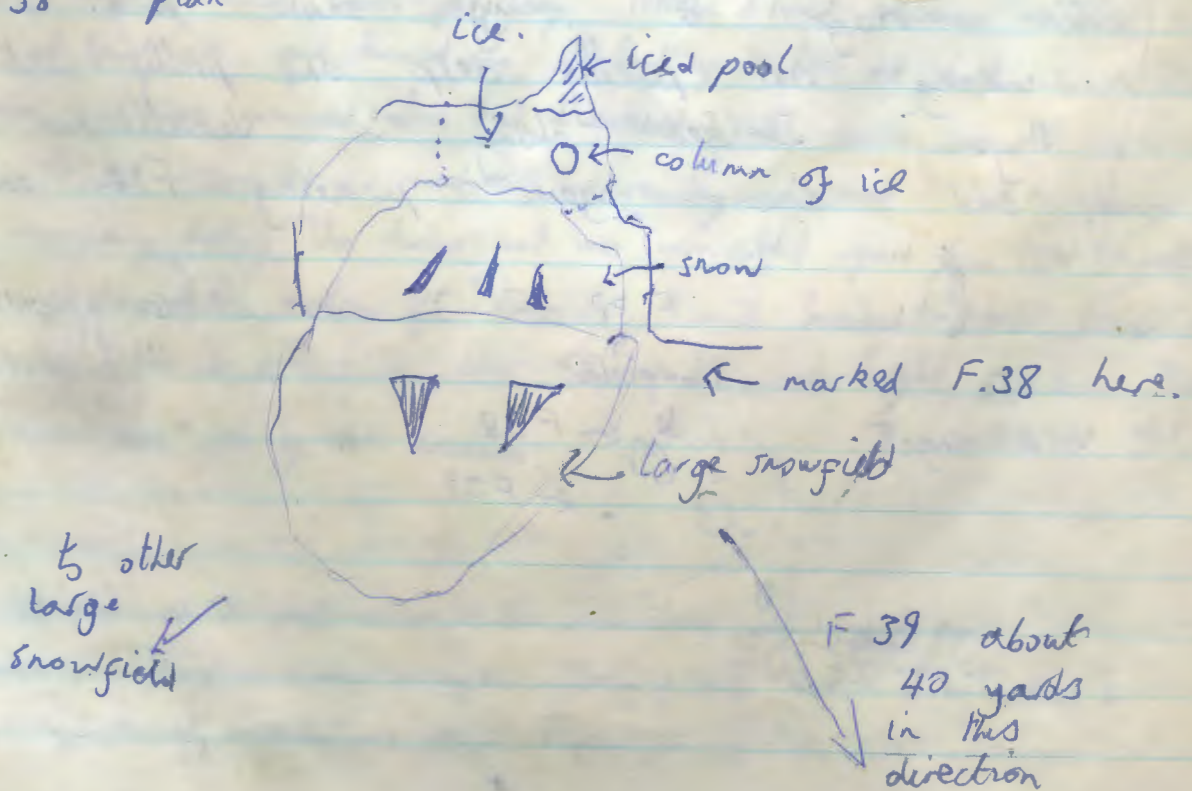 38 plan
ice.
iced pool
column of ice
snow
marked F.38 here.
large snowfield
to other
large
snowfield
F 39 about
40 yards
in this
direction